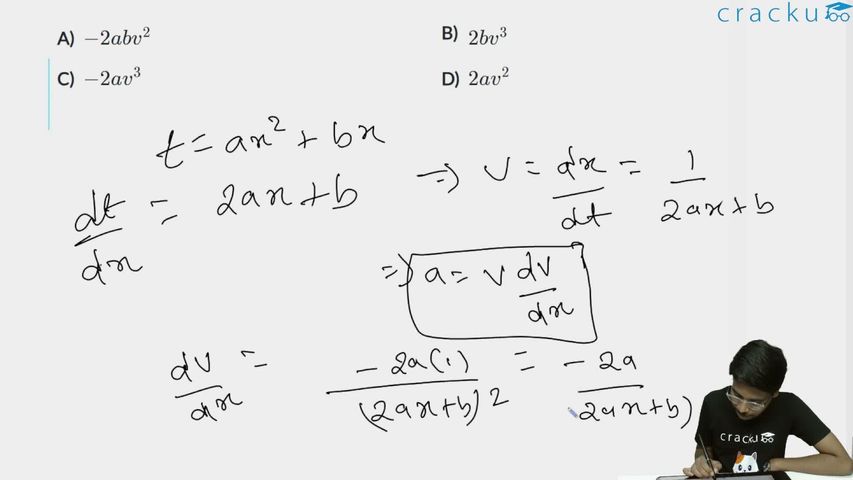 cracku
A) −2abv² B) 2bv³
C) −2av³ D) 2av²
t = ax² + bx
dt/dx = 2ax+b ⇒ v = dx/dt = 1/2ax+b
⇒ a = v dv/dx
dv/dx = −2a(1)/(2ax+b)² = −2a/2ax+b)
cracku